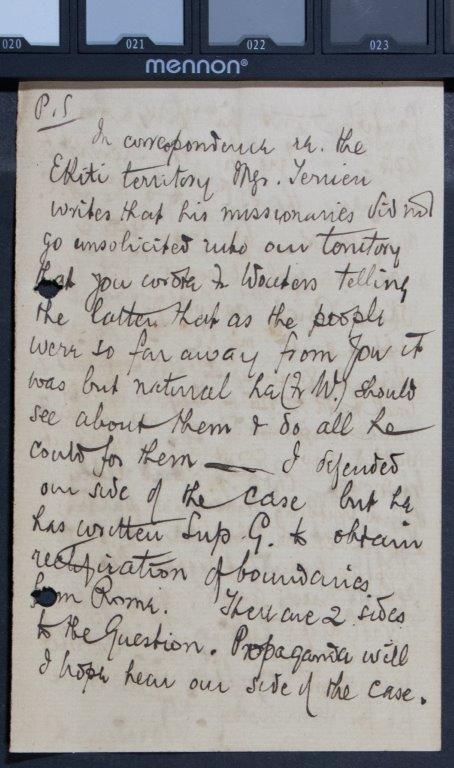 020 021 022 023
mennon®
P.S
In correspondence re. the
Ekiti territory Mgr. Terrien
writes that his missionaries did not
go unsolicited into our territory
that you wrote Fr Wouters telling
the latter that as the people
were so far away from you it
was but natural he (Fr W.) should
see about them & do all he
could for them — I defended
our side of the case but he
has written Sup G. to obtain
rectification of boundaries
from Rome. There are 2 sides
to the Question. Propaganda will
I hope hear our side of the case.